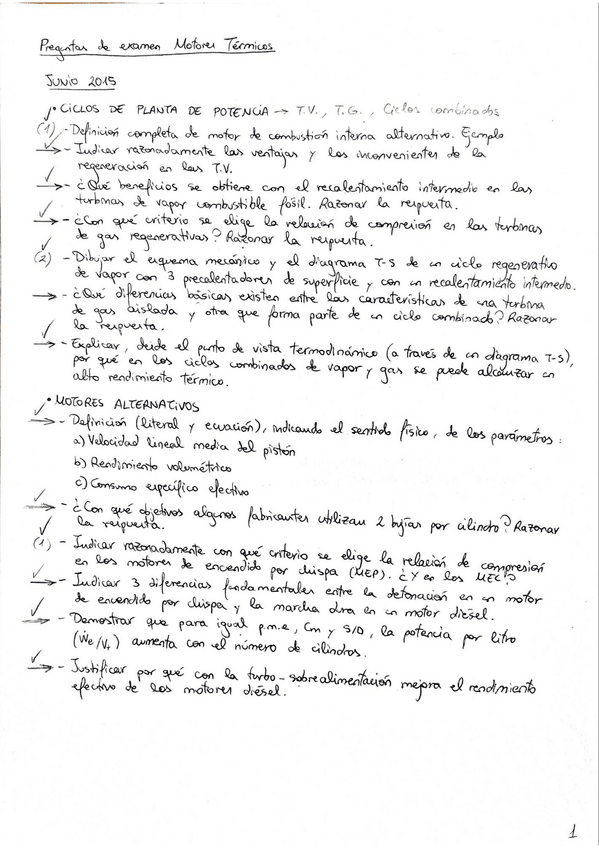 Preguntas de examen Motores Térmicos
JUNIO 2015
• CICLOS DE PLANTA DE POTENCIA → T.V., T.G., Ciclos combinados
(1) - Definición completa de motor de combustión interna alternativo. Ejemplo
→ - Indicar razonadamente las ventajas y los inconvenientes de la
regeneración en las T.V.
→ - ¿Qué beneficios se obtiene con el recalentamiento intermedio en las
turbinas de vapor combustible fósil. Razonar la respuesta.
→ - ¿Con qué criterio se elige la relación de compresión en las turbinas
de gas regenerativas? Razonar la respuesta.
(2) - Dibujar el esquema mecánico y el diagrama T-S de un ciclo regenerativo
de vapor con 3 precalentadores de superficie y con un recalentamiento intermedio.
→ - ¿Qué diferencias básicas existen entre las características de una turbina
de gas aislada y otra que forma parte de un ciclo combinado? Razonar
la respuesta.
→ - Explicar, desde el punto de vista termodinámico (a través de un diagrama T-S),
por qué en los ciclos combinados de vapor y gas se puede alcanzar un
alto rendimiento térmico.
• MOTORES ALTERNATIVOS
→ - Definición (literal y ecuación), indicando el sentido físico, de los parámetros:
a) Velocidad lineal media del pistón
b) Rendimiento volumétrico
c) Consumo específico efectivo
→ - ¿Con qué objetivos algunos fabricantes utilizan 2 bujías por cilindro? Razonar
la respuesta.
(1) - Indicar razonadamente con qué criterio se elige la relación de compresión
en los motores de encendido por chispa (MEP). ¿Y en los MEC?
→ - Indicar 3 diferencias fundamentales entre la detonación en un motor
de encendido por chispa y la marcha dura en un motor diésel.
→ - Demostrar que para igual p.m.e, Cm y S/D, la potencia por litro
(Ẇe/Vt) aumenta con el número de cilindros.
→ - Justificar por qué con la turbo-sobrealimentación mejora el rendimiento
efectivo de los motores diésel.
1